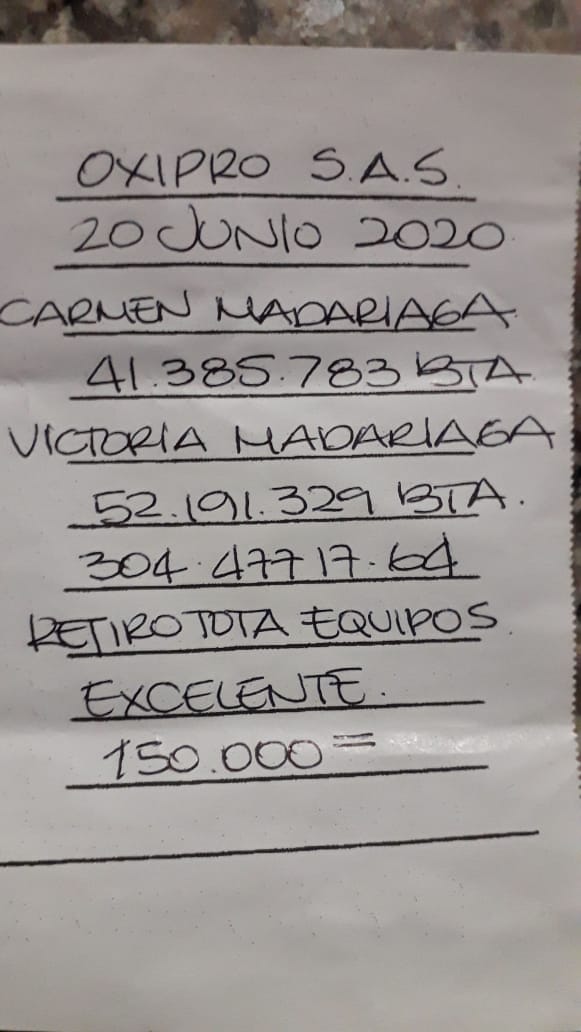 OXIPRO S.A.S.
20 JUNIO 2020
CARMEN MADARIAGA
41.385.783 BTA.
VICTORIA MADARIAGA
52.191.329 BTA.
304.47717.64
RETIRO TOTA EQUIPOS.
EXCELENTE.
150.000=